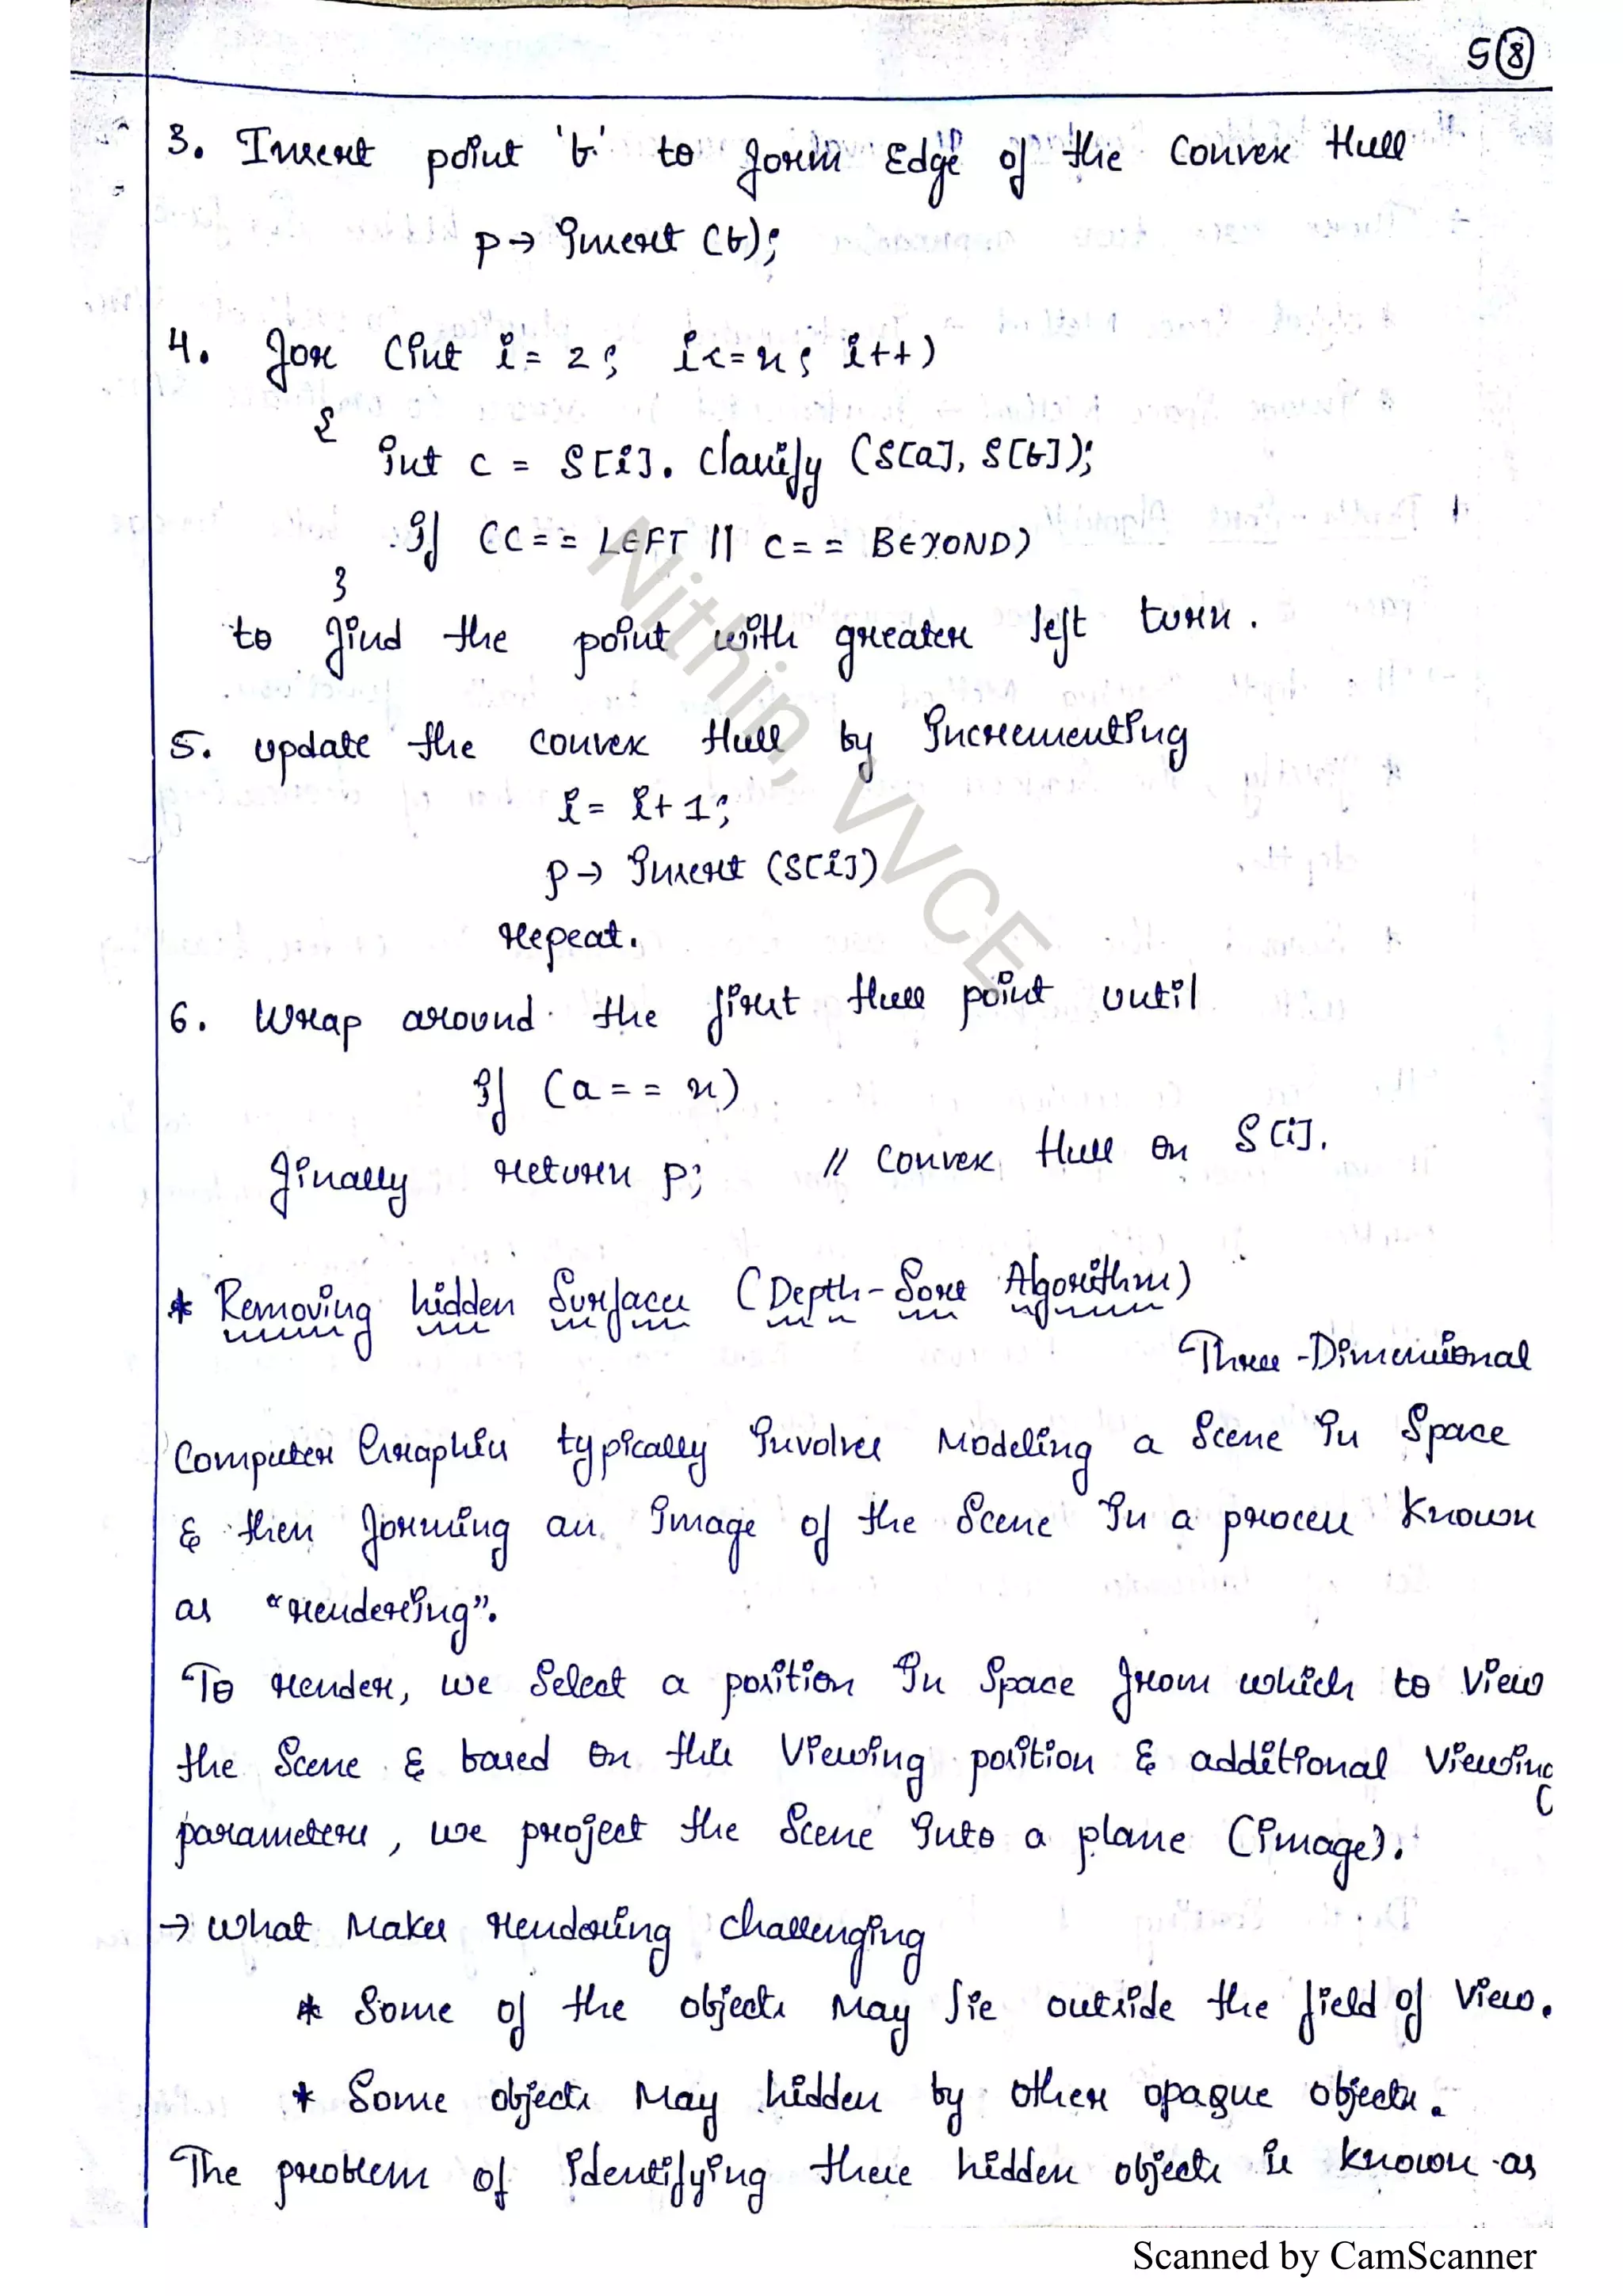 5 8
3. Insert point 'b' to form Edge of the Convex Hull
p → insert (b);
4. for (int i = 2; i <= n; i++)
{
int c = S[i]. classify (S[a], S[b]);
if (c == LEFT || c == BEYOND)
}
to find the point with greater left turn.
5. update the convex Hull by incrementing
i = i + 1;
p → insert (S[i])
repeat.
6. Wrap around the first Hull point until
if (a == n)
finally return p; // Convex Hull on S[i].
* Removing hidden Surfaces (Depth-Sort Algorithm)
Three-Dimensional
Computer Graphics typically involves Modeling a Scene in Space
& then forming an image of the Scene in a process known
as "rendering".
To render, we Select a position in Space from which to view
the Scene & based on this Viewing position & additional Viewing
parameters, we project the Scene into a plane (image).
→ What Makes rendering challenging
* Some of the objects May lie outside the field of View.
* Some objects May hidden by other opaque objects.
The problem of identifying these hidden objects is known as
Nithin, VVCE
Scanned by CamScanner